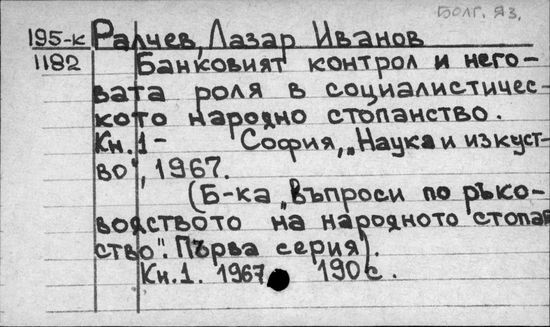 Болг. яз.
195-к Ралчев, Лазар Иванов
1182 Банковият контрол и него-
вата роля в социалистичес-
кото народно стопанство.
Кн. 1- София, „Наука и изкуст-
во", 1967.
(Б-ка „Въпроси по ръко-
водството на народното стопан
ство". Първа серия).
Кн. 1. 1967. 190 с.